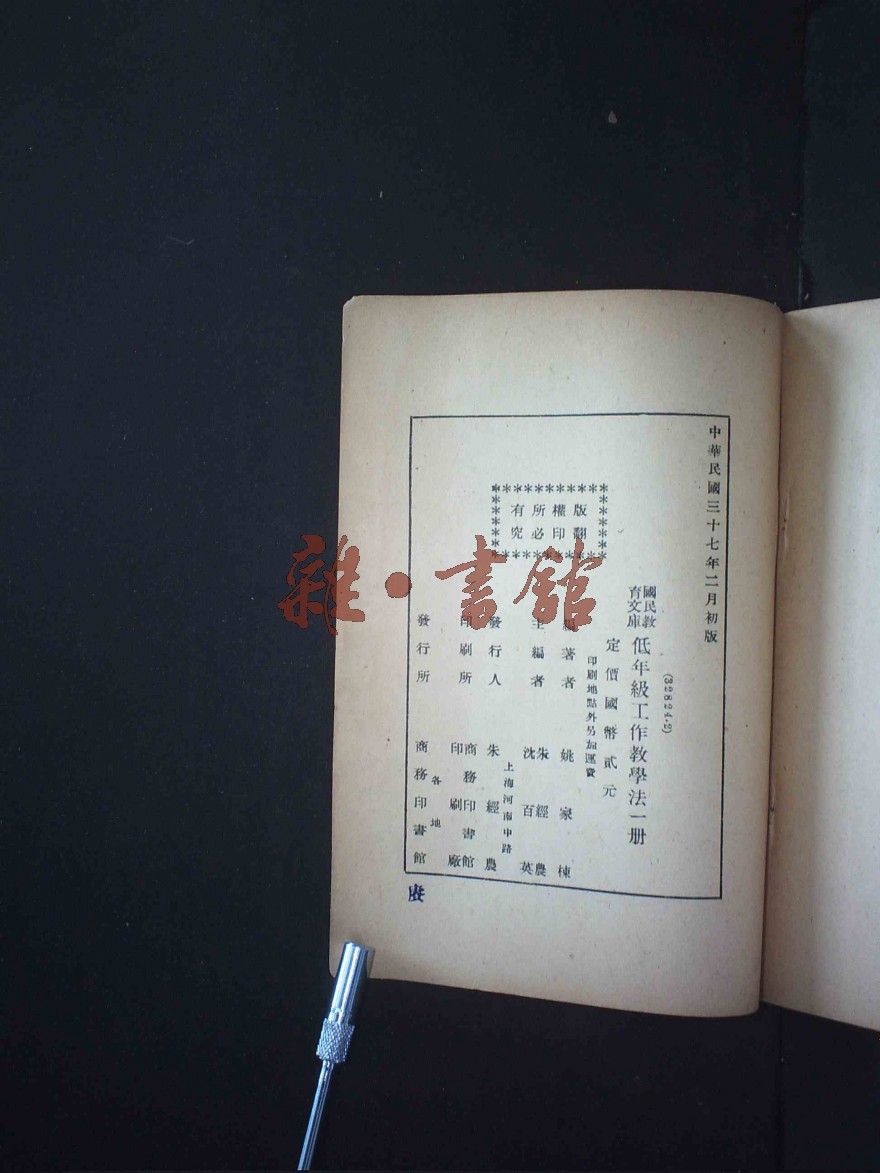 中華民國三十七年二月初版
(32824·2)
國民教育文庫 低年級工作教學法一册
定價國幣貳元
印刷地點外另加運費
版權所有
翻印必究
編著者 姚家棟
主編者 朱經農 沈百英
上海河南中路
發行人 朱經農
印刷所 商務印書館印刷廠
各地
發行所 商務印書館
雜·書館